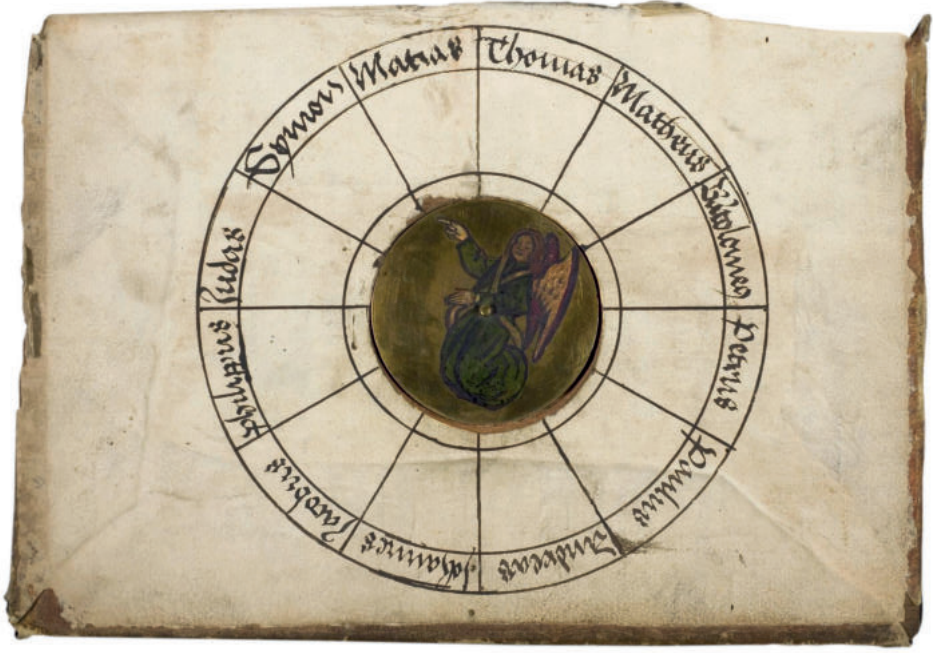 Thomas
Matheus
Bartolomeus
Petrus
Paulus
Andreas
Johannes
Jacobus
phılıppus
Judas
Symois
Matias